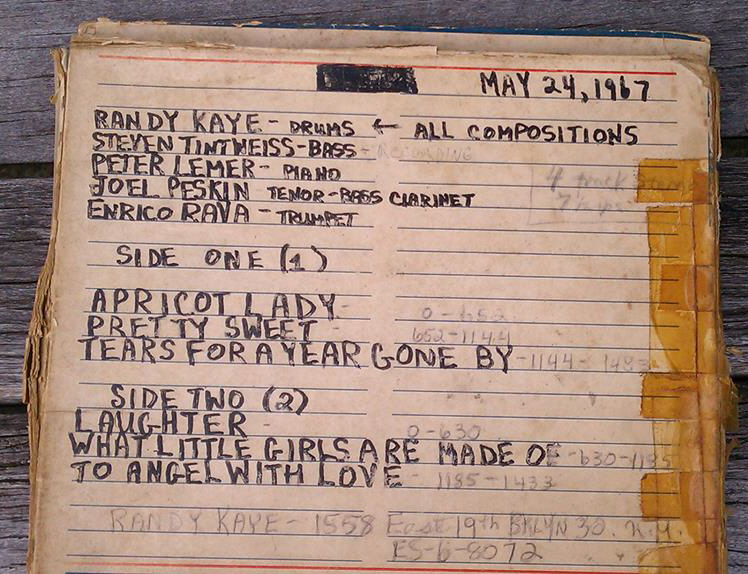 MAY 24, 1967
RANDY KAYE - DRUMS ← ALL COMPOSITIONS
STEVEN TINTWEISS - BASS - RECORDING
PETER LEMER - PIANO
4 track
JOEL PESKIN TENOR - BASS CLARINET
7
ENRICO RAVA - TRUMPET
SIDE ONE (1)
APRICOT LADY - 0 - 652
PRETTY SWEET - 652 - 1144
TEARS FOR A YEAR GONE BY - 1144 - 1483
SIDE TWO (2)
LAUGHTER - 0 - 630
WHAT LITTLE GIRLS ARE MADE OF - 630 - 1185
TO ANGEL WITH LOVE - 1185 - 1433
RANDY KAYE - 1558 East 19th BKLYN 30. N.Y.
ES-6-8072